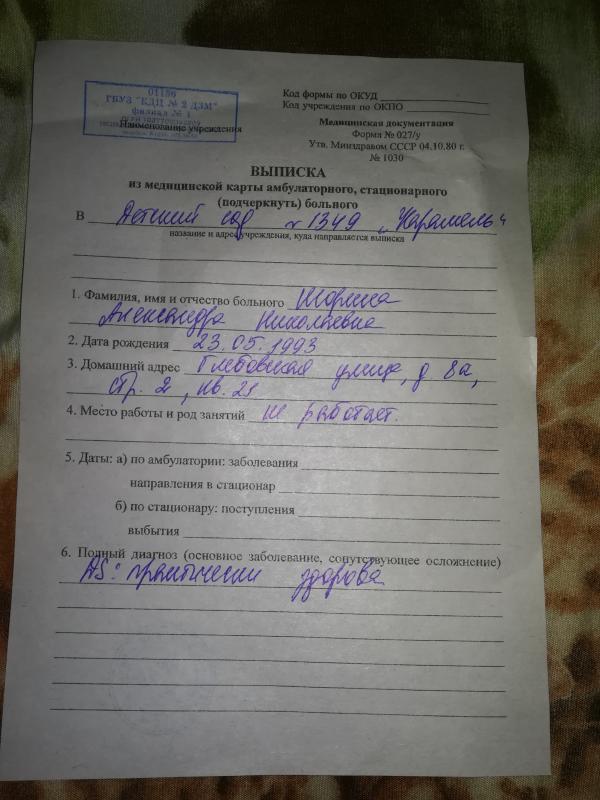 Код формы по ОКУД
Код учреждения по ОКПО
01186
ГБУЗ "КДЦ № 2 ДЗМ"
филиал № 1
Наименование учреждения
Медицинская документация
Форма № 027/у
Утв. Минздравом СССР 04.10.80 г.
№ 1030
ВЫПИСКА
из медицинской карты амбулаторного, стационарного
(подчеркнуть) больного
В Детский сад № 1349 "Карамель"
название и адрес учреждения, куда направляется выписка
1. Фамилия, имя и отчество больного Шорина
Александра Николаевна
2. Дата рождения 23.05.1993
3. Домашний адрес Глебовская улица, д 8а,
стр. 2, кв. 21
4. Место работы и род занятий не работает.
5. Даты: а) по амбулатории: заболевания
направления в стационар
б) по стационару: поступления
выбытия
6. Полный диагноз (основное заболевание, сопутствующее осложнение)
DS: практически здорова